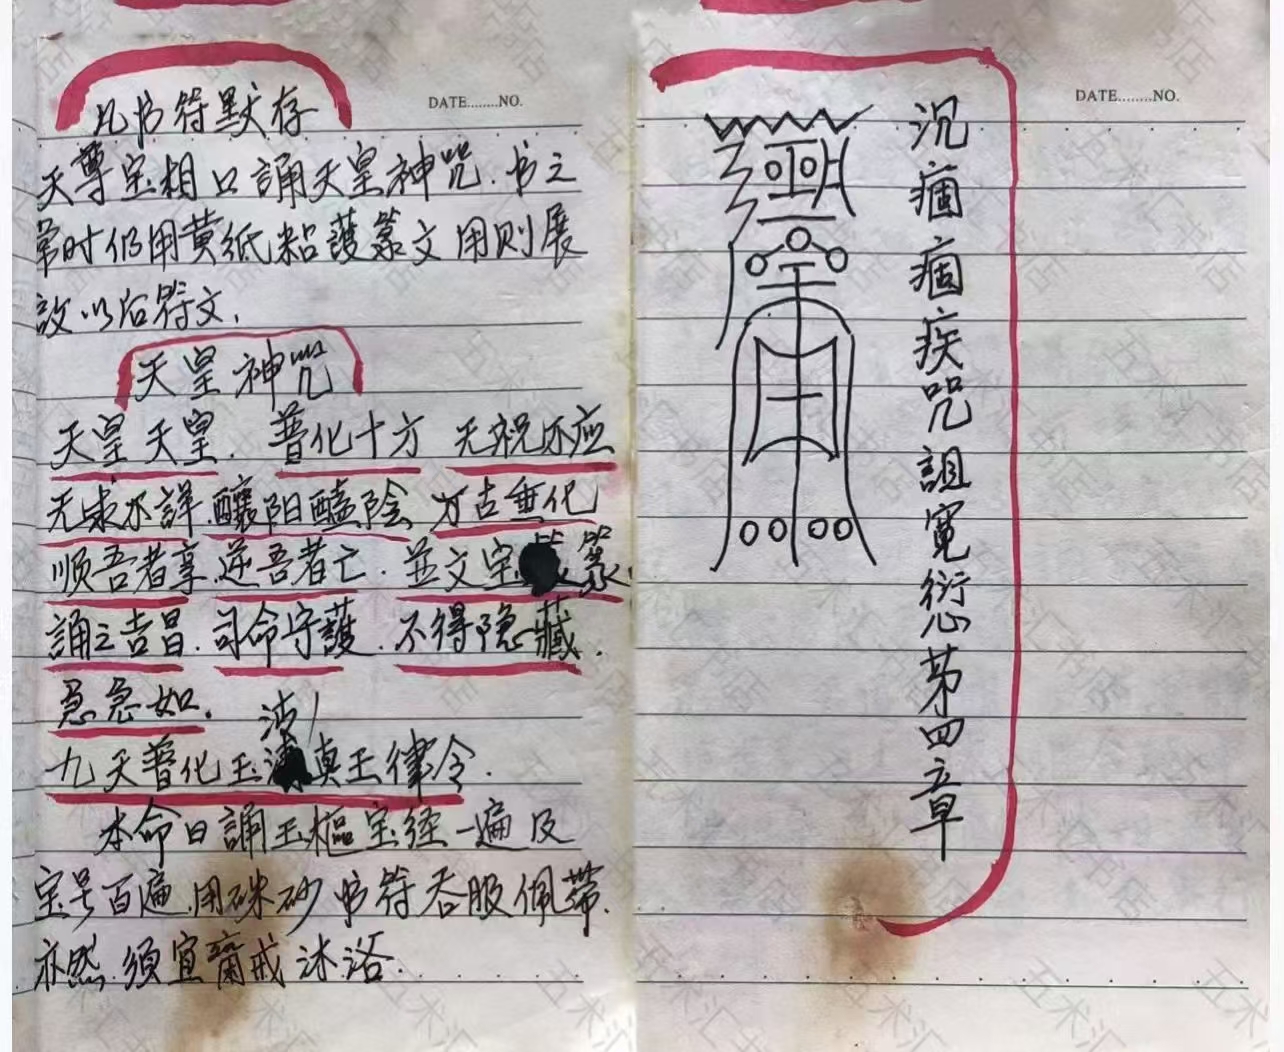 DATE........NO.
凡书符默存
天尊宝相口誦天皇神咒.书之
常时仍用黄纸粘護篆文用则展
誜以后符文.
天皇神咒
天皇天皇.普化十方 无祝不应
无求不詳.釀阳醘陰 万古垂化
顺吾者享.逆吾者亡.並文宝篆
誦之吉昌.司命守護.不得隐藏.
急急如.
九天普化玉清真王律令.
本命日誦玉樞宝经一遍及
宝号百遍.用硃砂书符吞服佩带.
亦然.须宜齋戒沐浴.
DATE........NO.
沉痼痼疾咒詛寃愆苐四章
五术汇书店